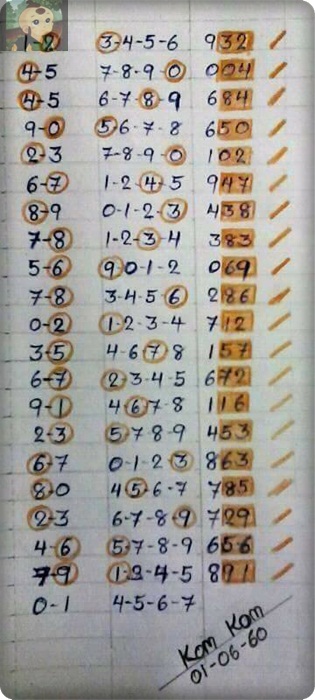 1-2 3-4-5-6 932
4-5 7-8-9-0 004
4-5 6-7-8-9 684
9-0 5-6-7-8 650
2-3 7-8-9-0 102
6-7 1-2-4-5 947
8-9 0-1-2-3 438
7-8 1-2-3-4 383
5-6 9-0-1-2 069
7-8 3-4-5-6 286
0-2 1-2-3-4 712
3-5 4-6-7-8 157
6-7 2-3-4-5 672
9-1 4-6-7-8 116
2-3 5-7-8-9 453
6-7 0-1-2-3 863
8-0 4-5-6-7 785
2-3 6-7-8-9 729
4-6 5-7-8-9 656
7-9 1-3-4-5 891
0-1 4-5-6-7
Kom Kom
01-06-60